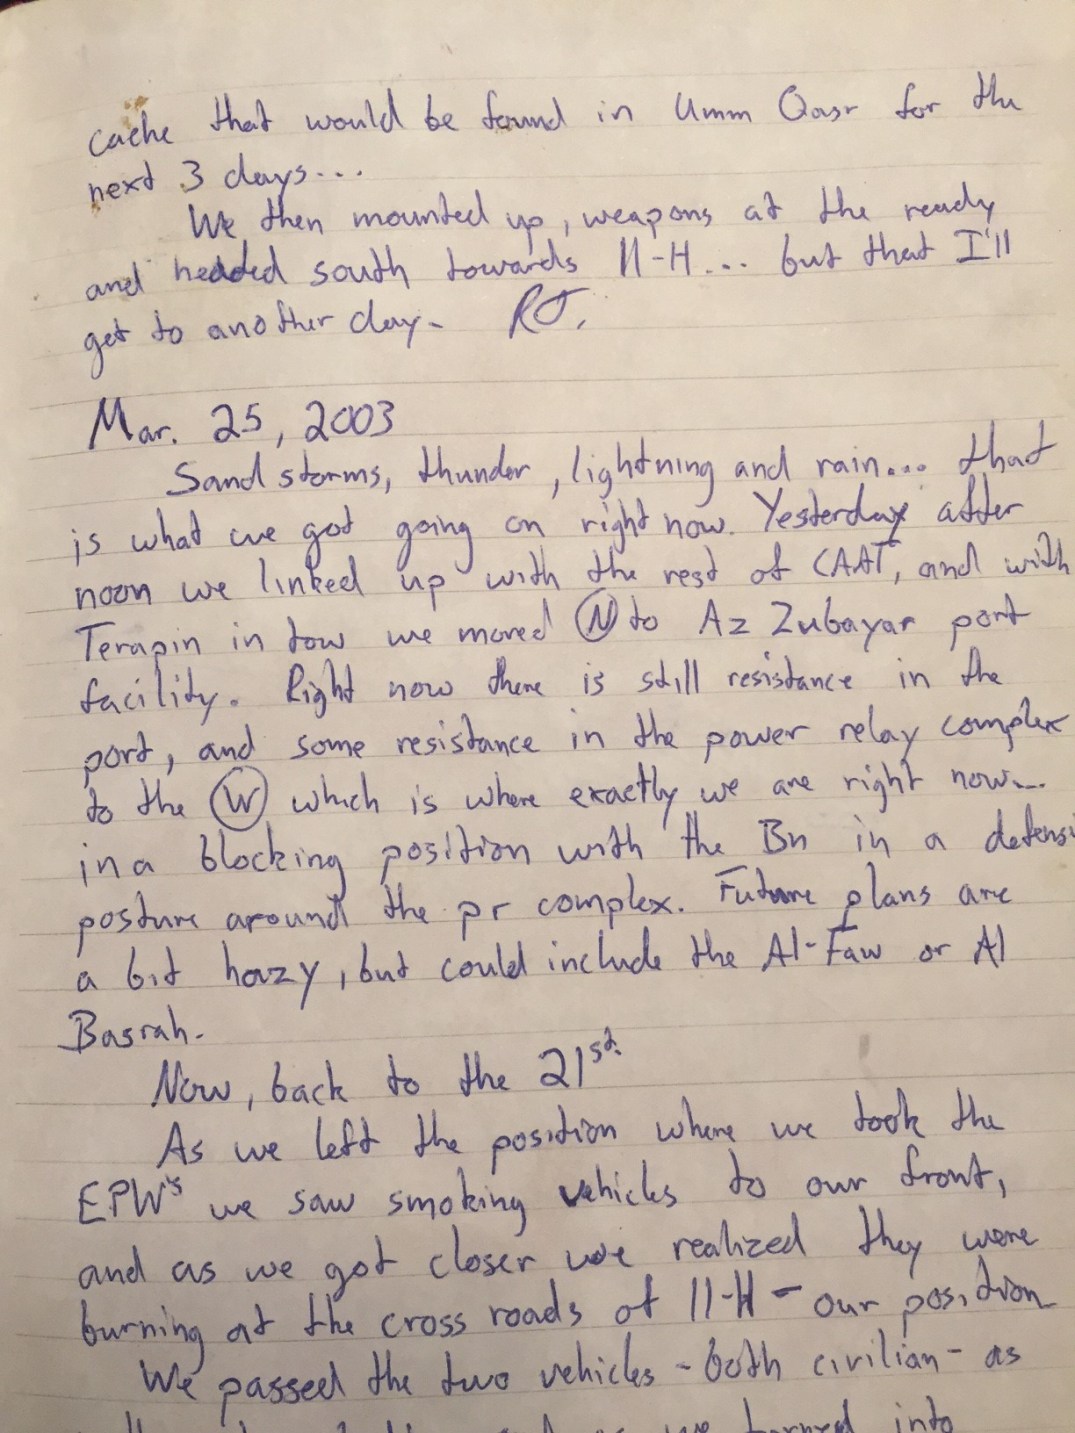 cache that would be found in Umm Qasr for the
next 3 days...
We then mounted up, weapons at the ready
and headed south towards 11-H... but that I'll
get to another day. RJ.
Mar. 25, 2003
Sand storms, thunder, lightning and rain... that
is what we got going on right now. Yesterday after
noon we linked up with the rest of CAAT, and with
Terapin in tow we moved N to Az Zubayar port
facility. Right now there is still resistance in the
port, and some resistance in the power relay complex
to the W which is where exactly we are right now...
in a blocking position with the Bn in a defensi
posture around the pr complex. Future plans are
a bit hazy, but could include the Al-Faw or Al
Basrah.
Now, back to the 21st.
As we left the position where we took the
EPW's we saw smoking vehicles to our front,
and as we got closer we realized they were
burning at the cross roads of 11-H - our position
We passed the two vehicles - both civilian - as
we turned into